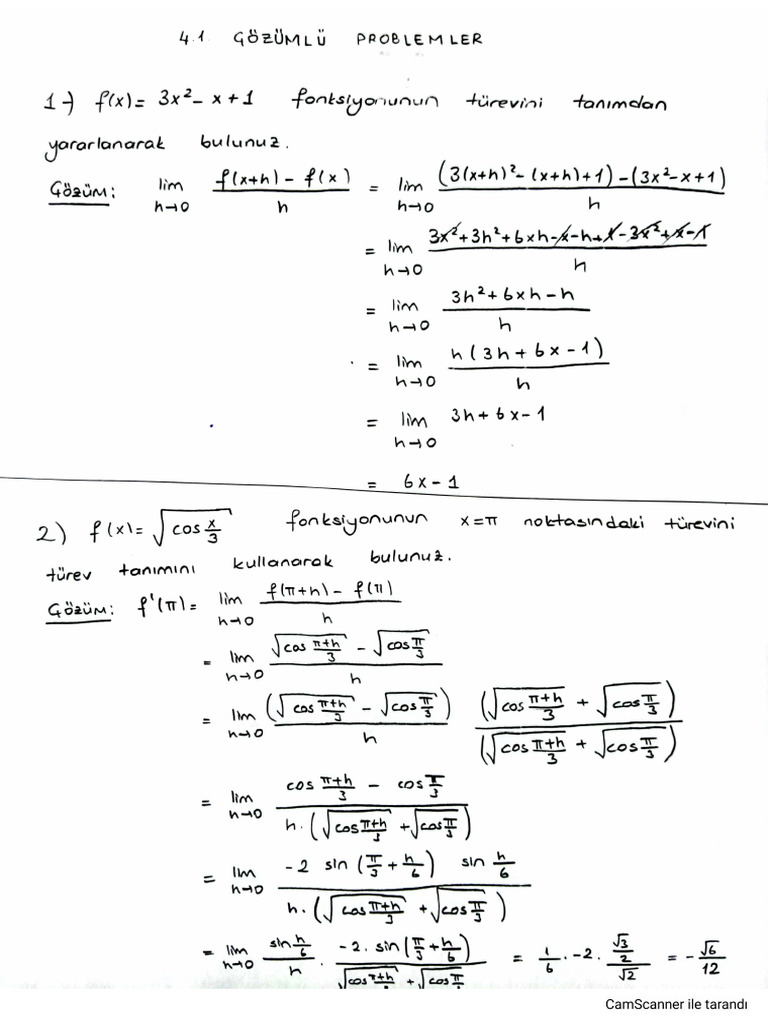 4.1 ÇÖZÜMLÜ PROBLEMLER
1-) f(x) = 3x² - x + 1 fonksiyonunun türevini tanımdan
yararlanarak bulunuz.
Çözüm: lim h→0 (f(x+h) - f(x))/h = lim h→0 ((3(x+h)² - (x+h)+1) - (3x² - x + 1))/h
= lim h→0 (3x² + 3h² + 6xh - x - h + 1 - 3x² + x - 1)/h
= lim h→0 (3h² + 6xh - h)/h
= lim h→0 h(3h + 6x - 1)/h
= lim h→0 3h + 6x - 1
= 6x - 1
2) f(x) = √(cos x/3) fonksiyonunun x = π noktasındaki türevini
türev tanımını kullanarak bulunuz.
Çözüm: f'(π) = lim h→0 (f(π+h) - f(π))/h
= lim h→0 (√(cos (π+h)/3) - √(cos π/3))/h
= lim h→0 (√(cos (π+h)/3) - √(cos π/3))/h (√(cos (π+h)/3) + √(cos π/3))/(√(cos (π+h)/3) + √(cos π/3))
= lim h→0 (cos (π+h)/3 - cos π/3)/(h·(√(cos (π+h)/3) + √(cos π/3)))
= lim h→0 (-2 sin(π/3 + h/6) sin h/6)/(h·(√(cos (π+h)/3) + √(cos π/3)))
= lim h→0 (sin h/6)/h · (-2·sin(π/3 + h/6))/(√(cos (π+h)/3) + √(cos π/3)) = 1/6 · -2 · (√3/2)/√2 = -√6/12
CamScanner ile tarandı